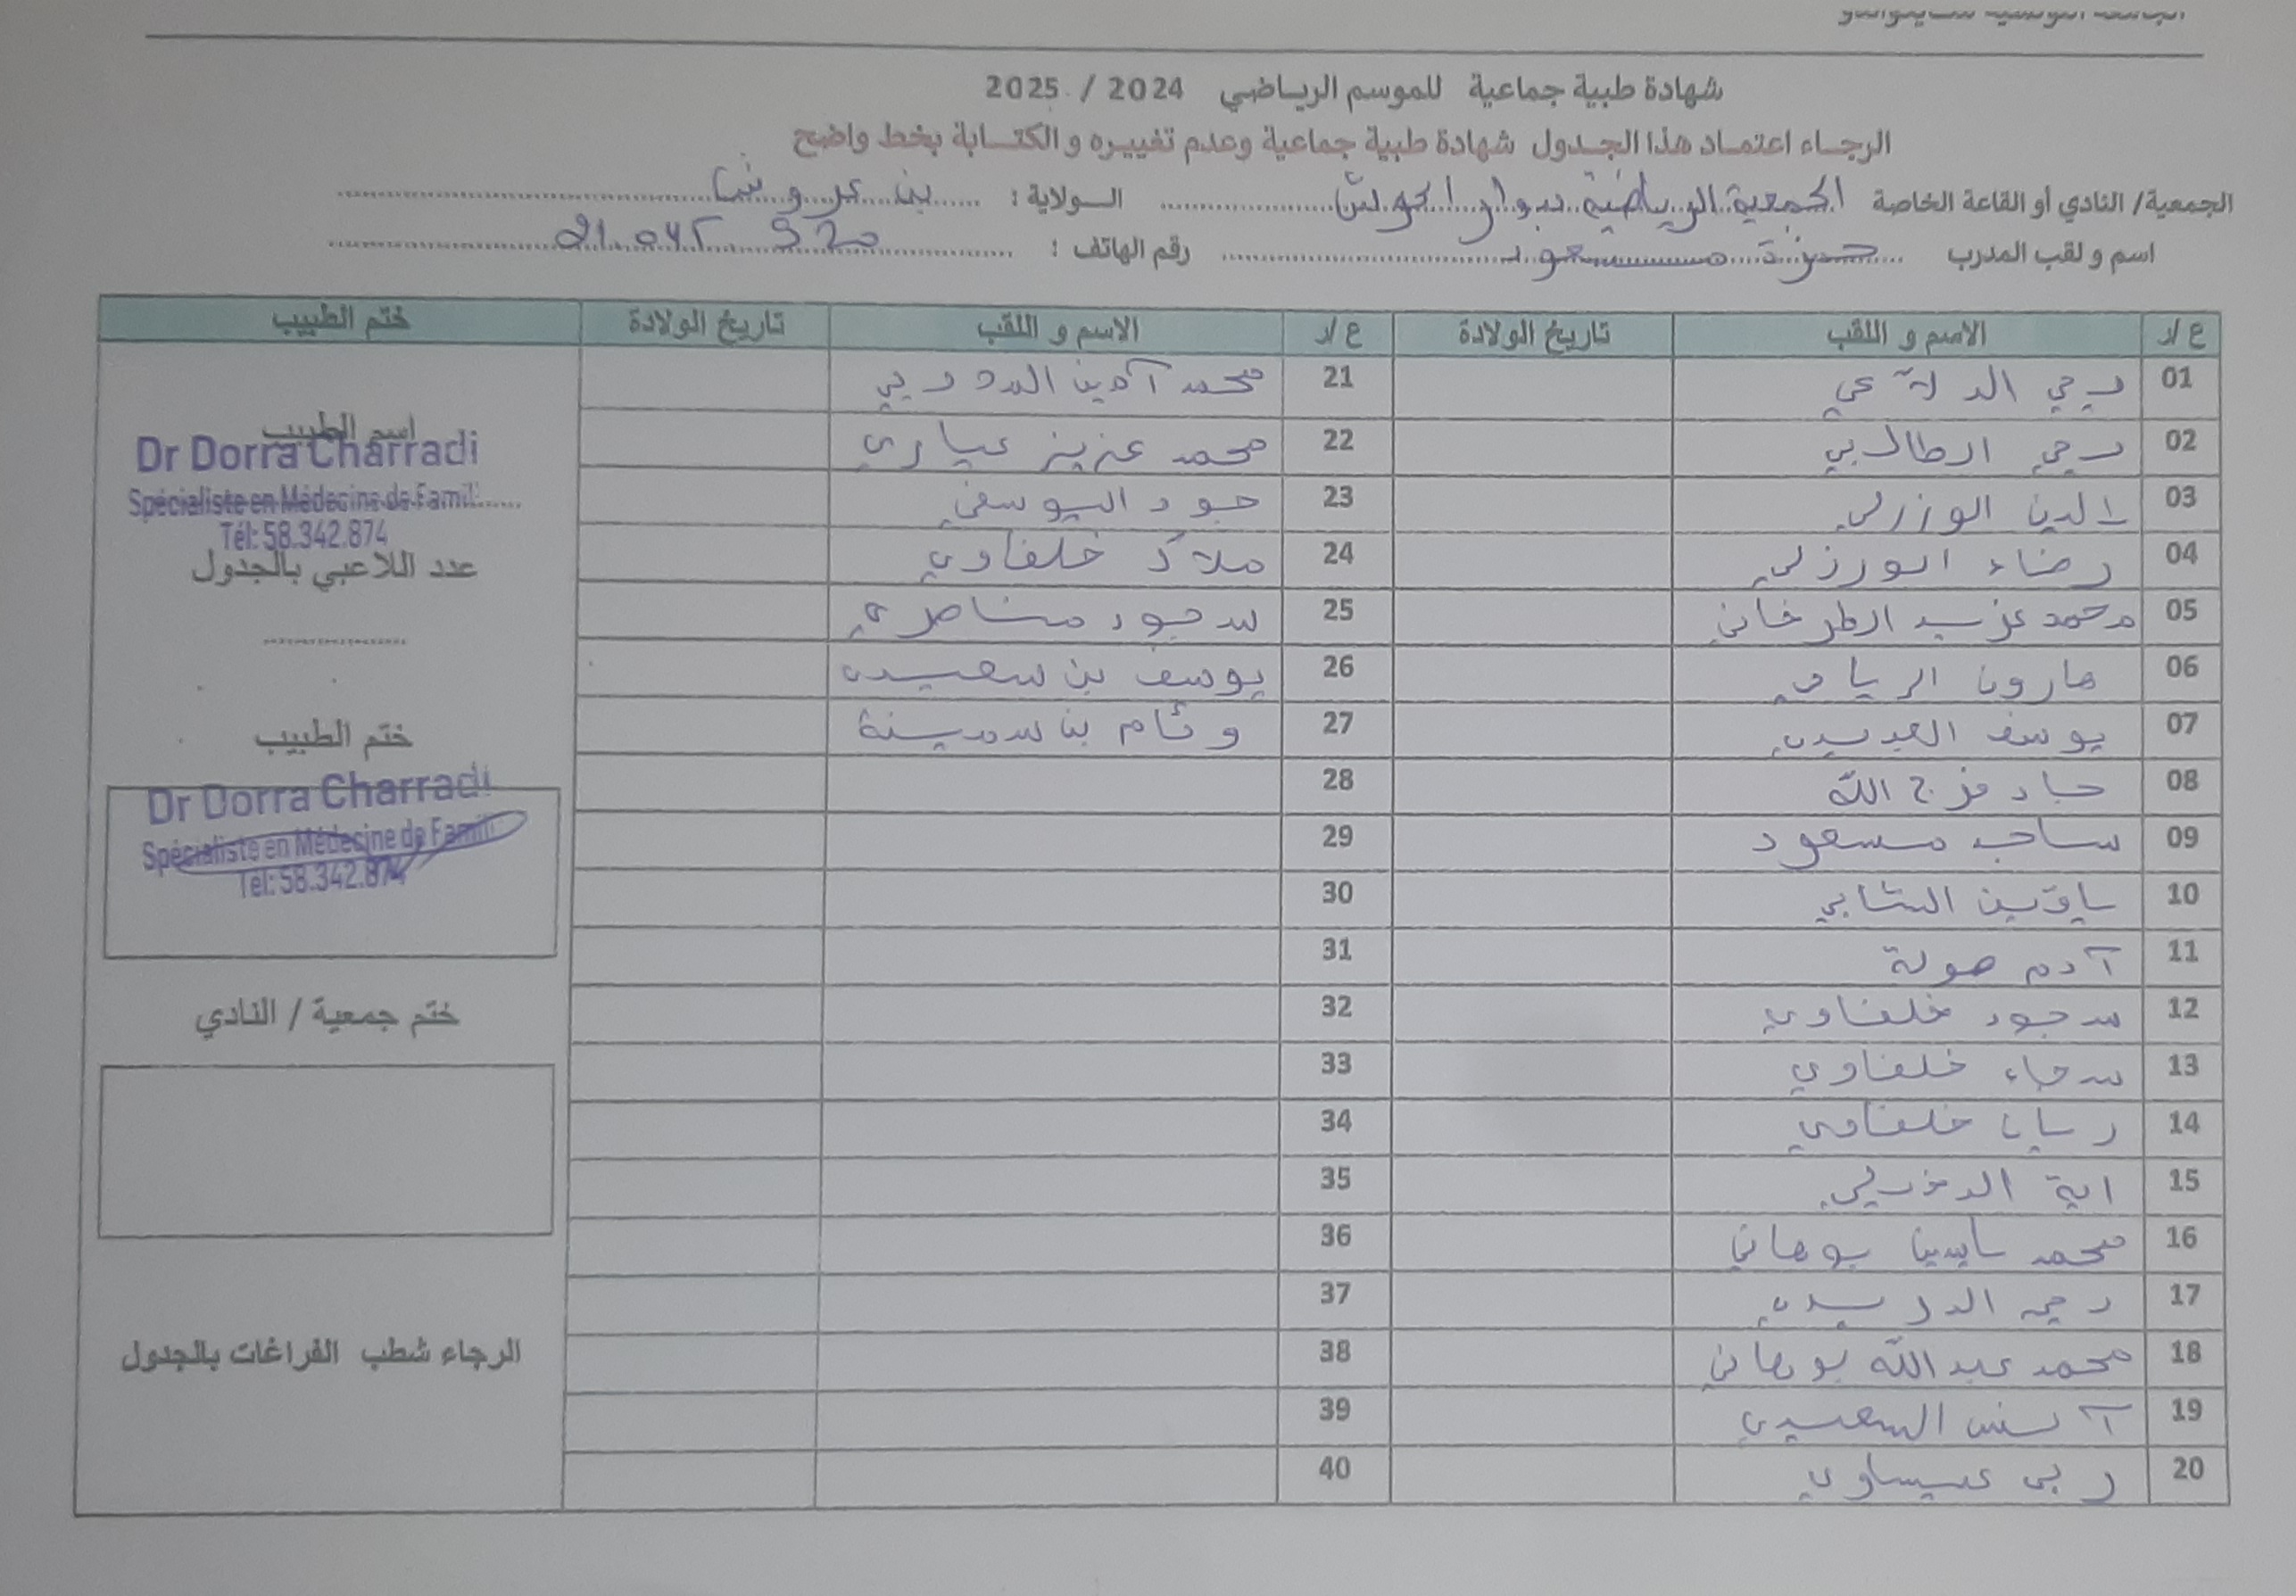 شهادة طبية جماعية للموسم الرياضي 2024 / 2025
الرجاء اعتماد هذا الجدول شهادة طبية جماعية وعدم تغييره و الكتابة بخط واضح
الجمعية/ النادي أو القاعة الخاصة الجمعية الرياضية بدوار الحوش الولاية : بن عروس
اسم و لقب المدرب حمزة مسعود رقم الهاتف :
ع/ر الاسم و اللقب تاريخ الولادة ع/ر الاسم و اللقب تاريخ الولادة ختم الطبيب
01 21 محمد آمين
02 22 محمد عزيز عياري
03 الوزرلي 23 اليوسفي
04 رضاء الورزلي 24 ملاك خلفاوي
05 محمد الطرخاني 25 سجود مناصري
06 هارون الرياحي 26 يوسف بن سعيد
07 يوسف العبيدي 27 وئام بن
08 فرج الله 28
09 مسعود 29
10 الشابي 30
11 آدم صولة 31
12 سجود خلفاوي 32
13 سجاء خلفاوي 33
14 ريان خلفاوي 34
15 اية 35
16 محمد ياسين بوهاني 36
17 الدريدي 37
18 محمد عبد الله بوهاني 38
19 آنس السعيدي 39
20 ربى عيساوي 40
اسم الطبيب
Dr Dorra Charradi
Spécialiste en Médecine de Famil
Tél: 58.342.874
عدد اللاعبي بالجدول
ختم الطبيب
Dr Dorra Charradi
Spécialiste en Médecine de Famil
Tél: 58.342.874
ختم جمعية / النادي
الرجاء شطب الفراغات بالجدول